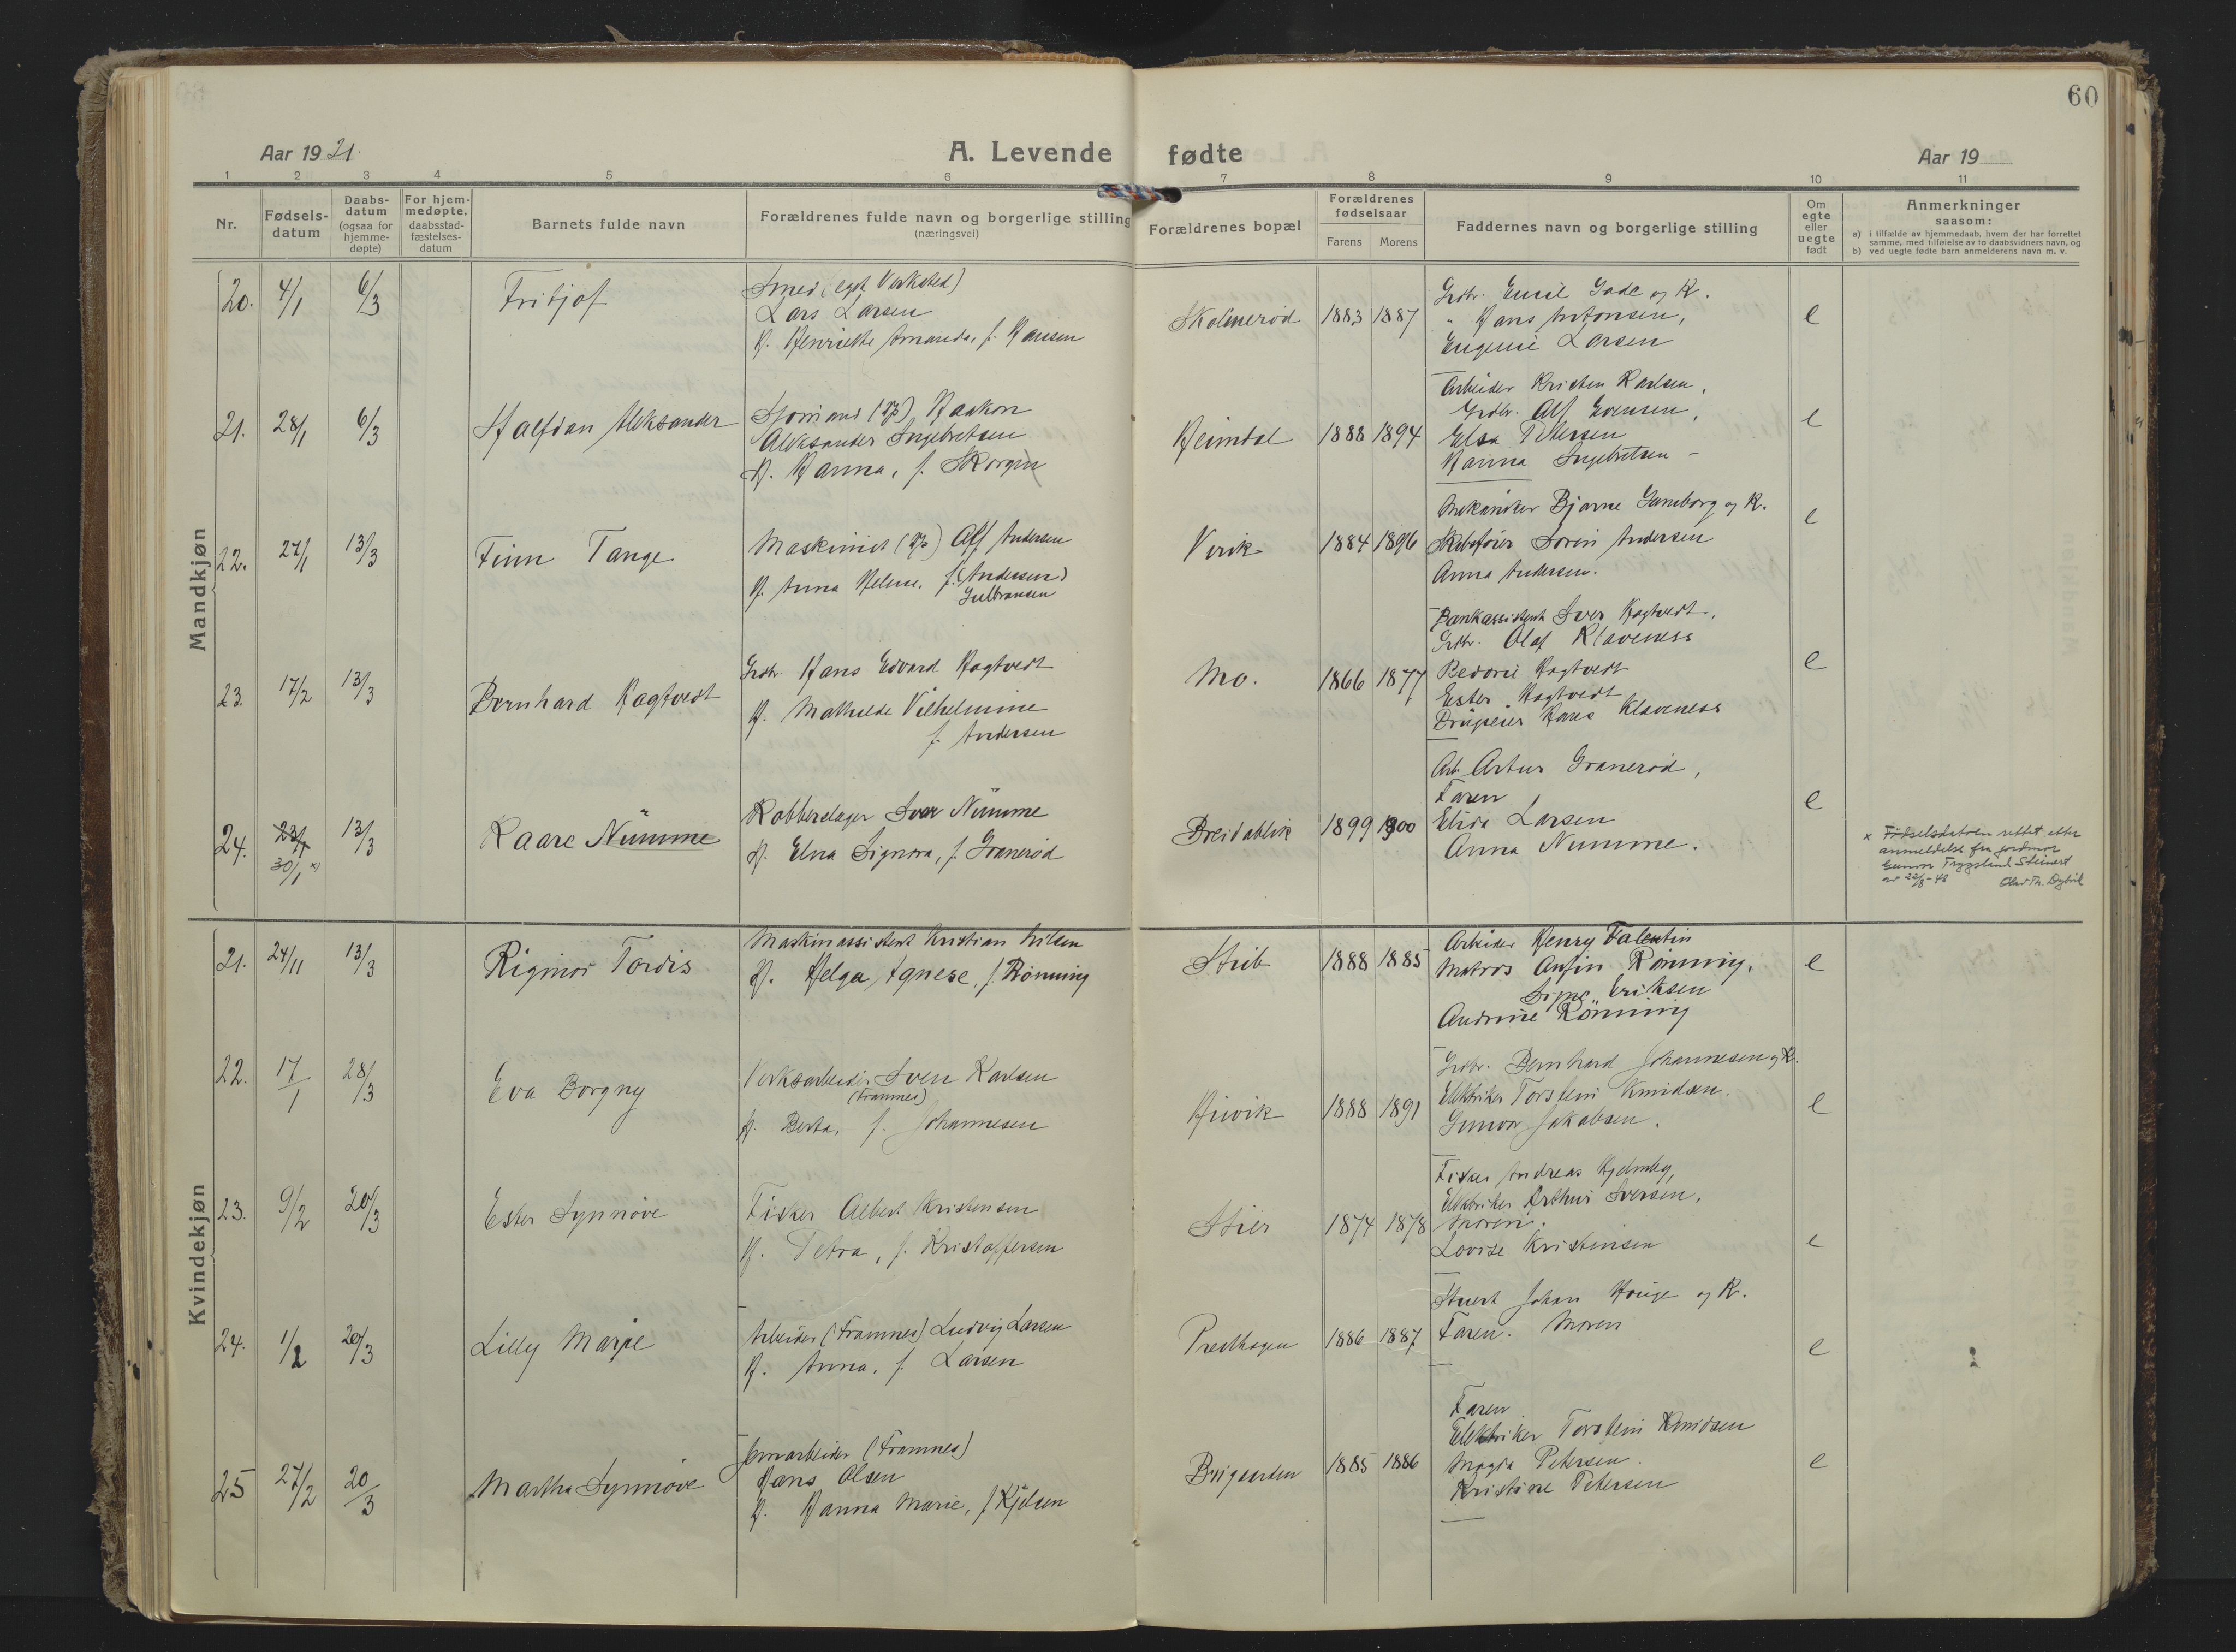 60
Aar 1921.
A. Levende fødte
Aar 19
1 2 3 4 5 6 7 8 9 10 11
Nr.
Fødsels-
datum
Daabs-
datum
(ogsaa for
hjemme-
døpte)
For hjem-
medøpte,
daabsstad-
fæstelses-
datum
Barnets fulde navn
Forældrenes fulde navn og borgerlige stilling
(næringsvei)
Forældrenes bopæl
Forældrenes
fødselsaar
Farens Morens
Faddernes navn og borgerlige stilling
Om
egte
eller
uegte
født
Anmerkninger
saasom:
a) i tilfælde av hjemmedaab, hvem der har forrettet
samme, med tilføielse av to daabsvidners navn, og
b) ved uegte fødte barn anmelderens navn m. v.
Mandkjøn
20. 4/1 6/3 Fritjof
Smed (eget Verksted)
Lars Larsen
H. Henriette Amanda, f. Hansen
Skolmerød 1883 1887
Grdbr. Emil Gade og K.
" Hans Antonsen,
Eugenie Larsen
e
21. 28/1 6/3 Halfdan Aleksander
Sjømand Haakon
Aleksander Ingebretsen
H. Hanna, f. Skorgen
Heimdal 1888 1894
Arbeider Kristen Karlsen,
Grdbr. Alf Evensen,
Elsa Petersen
Hanna Ingebretsen –
e
22. 27/1 13/3 Finn Tange
Maskinist Alf Andersen
H. Anna Helene, f. (Andersen)
Gulbransen
Virik 1884 1896
Mekaniker Bjarne Laneborg og K.
Skibsfører Soren Andersen
Anna Andersen.
e
23. 17/2 13/3 Bernhard Hagtvedt
Grdbr. Hans Edvard Hagtvedt
H. Mathilde Vilhelmine
f. Andersen
Mo. 1866 1877
Bankassistent Iver Hagtvedt,
Grdbr. Olaf Klaveness
Hagtvedt
Ester Hagtvedt
Hans Klaveness
e
24. 23/1 13/3 Kaare Numme
30/1 x)
Kobberslager Iver Numme
H. Elna Signora, f. Granerød
Breidablik 1899 1900
Arb. Artur Granerød,
Faren
Elida Larsen
Anna Numme.
e
x Fødselsdatoen rettet etter
anmeldelse fra jordmor
Gunvor Tryggslund Steinert
av 22/8-48 Olav Th. Dybvik
Kvindekjøn
21. 24/11 13/3 Rigmor Tordis
Maskinassistent Kristian Nilsen
H. Helga Agnese, f. Rønning
Stub 1888 1885
Arbeider Henry Falentin
Matros Anfin Rønning,
Signe Eriksen
Andrine Rønning
e
22. 17/1 28/3 Eva Borgny
Verksarbeid. Sven Karlsen
(Framnes)
H. Berta, f. Johannesen
Huvik 1888 1891
Grdbr. Bernhard Johannesen og K.
Elektriker Torstein Knudsen.
Gunvor Jakobsen.
e
23. 9/2 20/3 Ester Synnøve
Fisker Albert Kristensen
H. Petra, f. Kristoffersen
1874 1878
Fisker Andreas Hjelmby,
Elektriker Arthur Iversen,
Moren.
Lovise Kristensen
e
24. 1/2 20/3 Lilly Marie
Arbeider (Framnes) Ludvig Larsen
H. Anna, f. Larsen
Presthagen 1886 1887
Stuert Johan Hauge og K.
Faren. Moren
e
25 27/2 20/3 Martha Synnøve
Jernarbeider (Framnes)
Hans Olsen
H. Hanna Marie, f. Kjelsen
Brugaarden 1885 1886
Faren
Elektriker Torstein Knudsen
Magda Petersen.
Kristine Petersen
e